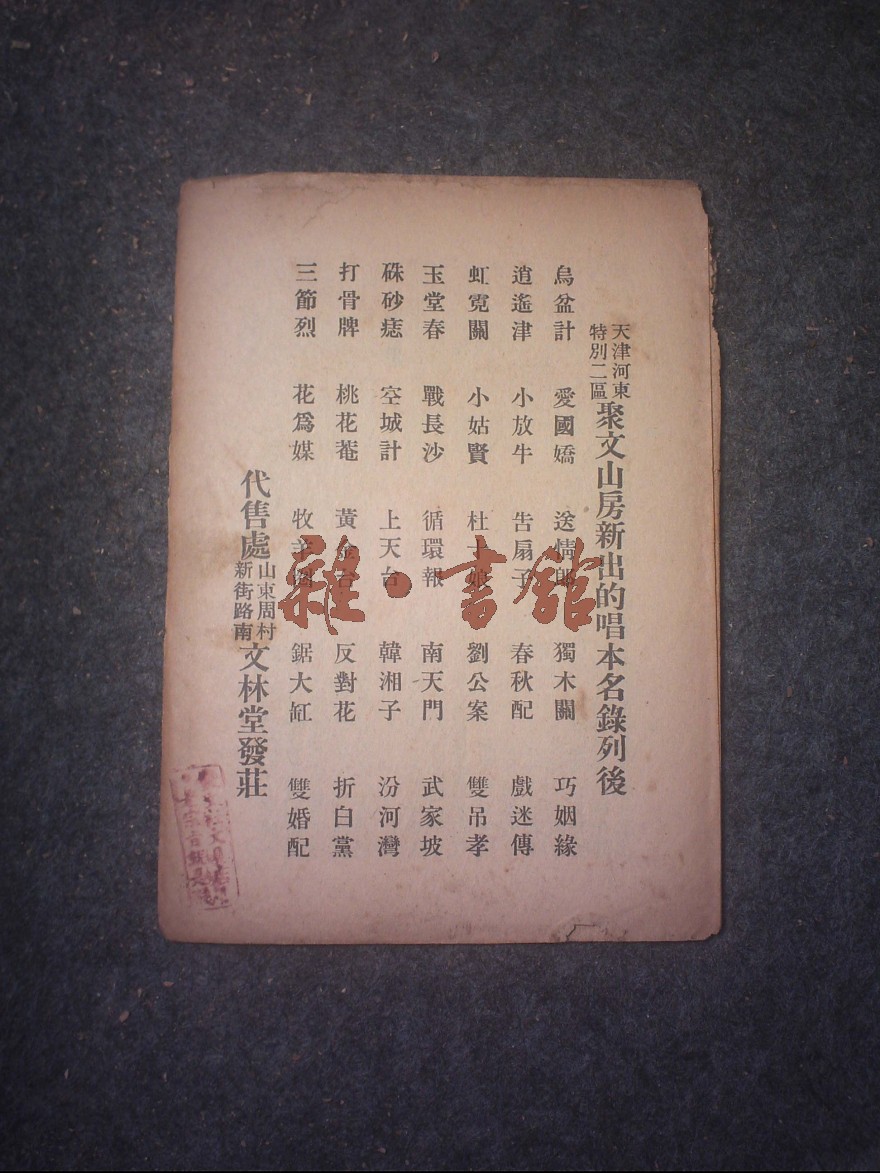 天津河東
特別二區
聚文山房新出的唱本名錄列後
烏盆計 愛國嬌 送情郎 獨木關 巧姻緣
逍遙津 小放牛 告扇子 春秋配 戲迷傳
虹霓關 小姑賢 杜十娘 劉公案 雙吊孝
玉堂春 戰長沙 循環報 南天門 武家坡
硃砂痣 空城計 上天台 韓湘子 汾河灣
打骨牌 桃花菴 黃金台 反對花 折白黨
三節烈 花爲媒 牧羊圈 鋸大缸 雙婚配
代售處
山東周村
新街路南
文林堂發莊
雜·書館